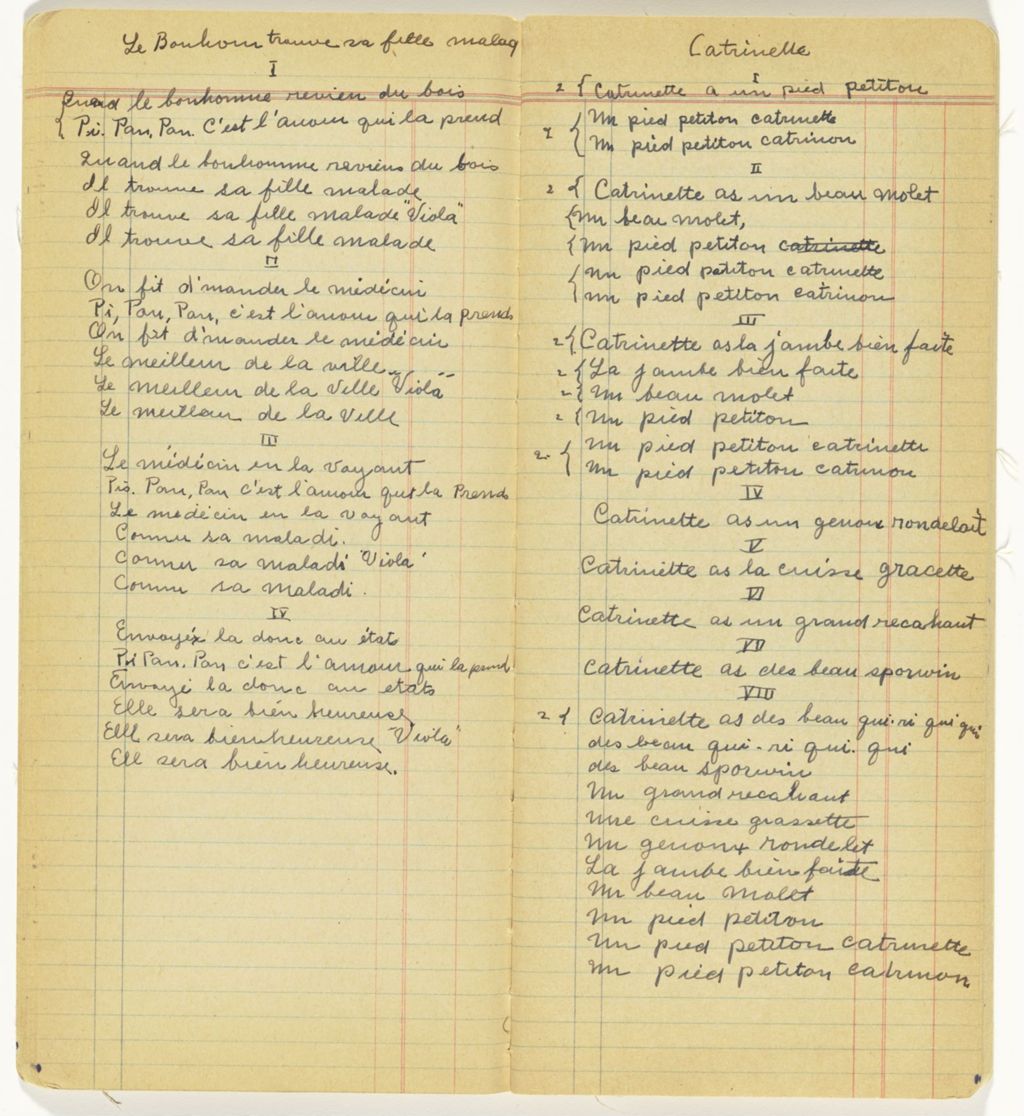 Le Bonhom trouve sa fille malad
I
Quand le bonhomme revien du bois
{ Pi. Pan, Pan. C'est l'amour qui la prend
Quand le bonhomme reviens du bois
Il trouve sa fille malade
Il trouve sa fille malade "Viola"
Il trouve sa fille malade
II
On fit d'mander le médécin
Pi, Pan, Pan, c'est l'amour qui la prends
On fit d'mander le médécin
Le meilleur de la ville
Le meilleur de la Ville "Viola"
Le meilleur de la Ville
III
Le médécin en la voyant
Pis. Pan, Pan c'est l'amour qui la Prends
Le médécin en la voyant
Connu sa maladi.
Connu sa maladi "Viola"
Connu sa maladi.
IV
Envoyéz la donc au état
Pi Pan. Pan c'est l'amour qui la prend
Envoyé la donc au états
Elle sera bién heureuse,
Elle sera bien heureuse "Viola"
Ell sera bien heureuse.
Catrinette
I
2 { Catrinette a un pied petiton
2 { Un pied petiton catrinette
Un pied petiton catrinon
II
2 { Catrinette as un beau molet
{ Un beau molet,
{ Un pied petiton catrinette
{ Un pied petiton catrinette
Un pied petiton catrinon
III
2 { Catrinette as la jambe bién faite
2 { La jambe bien faite
2 { Un beau molet
2 { Un pied petiton
2 { Un pied petiton catrinette
Un pied petiton catrinon
IV
Catrinette as un genoux rondelait
V
Catrinette as la cuisse gracette
VI
Catrinette as un grand recahaut
VII
Catrinette as des beau sporwin
VIII
2 { Catrinette as des beau qui-ri qui qui
des beau qui-ri qui-qui
des beau sporwin
Un grand recahaut
Une cuisse grassette
Un genoux rondelet
La jambe bién faite
Un beau molet
Un pied petiton
Un pied petiton catrinette
Un pied petiton catrinon